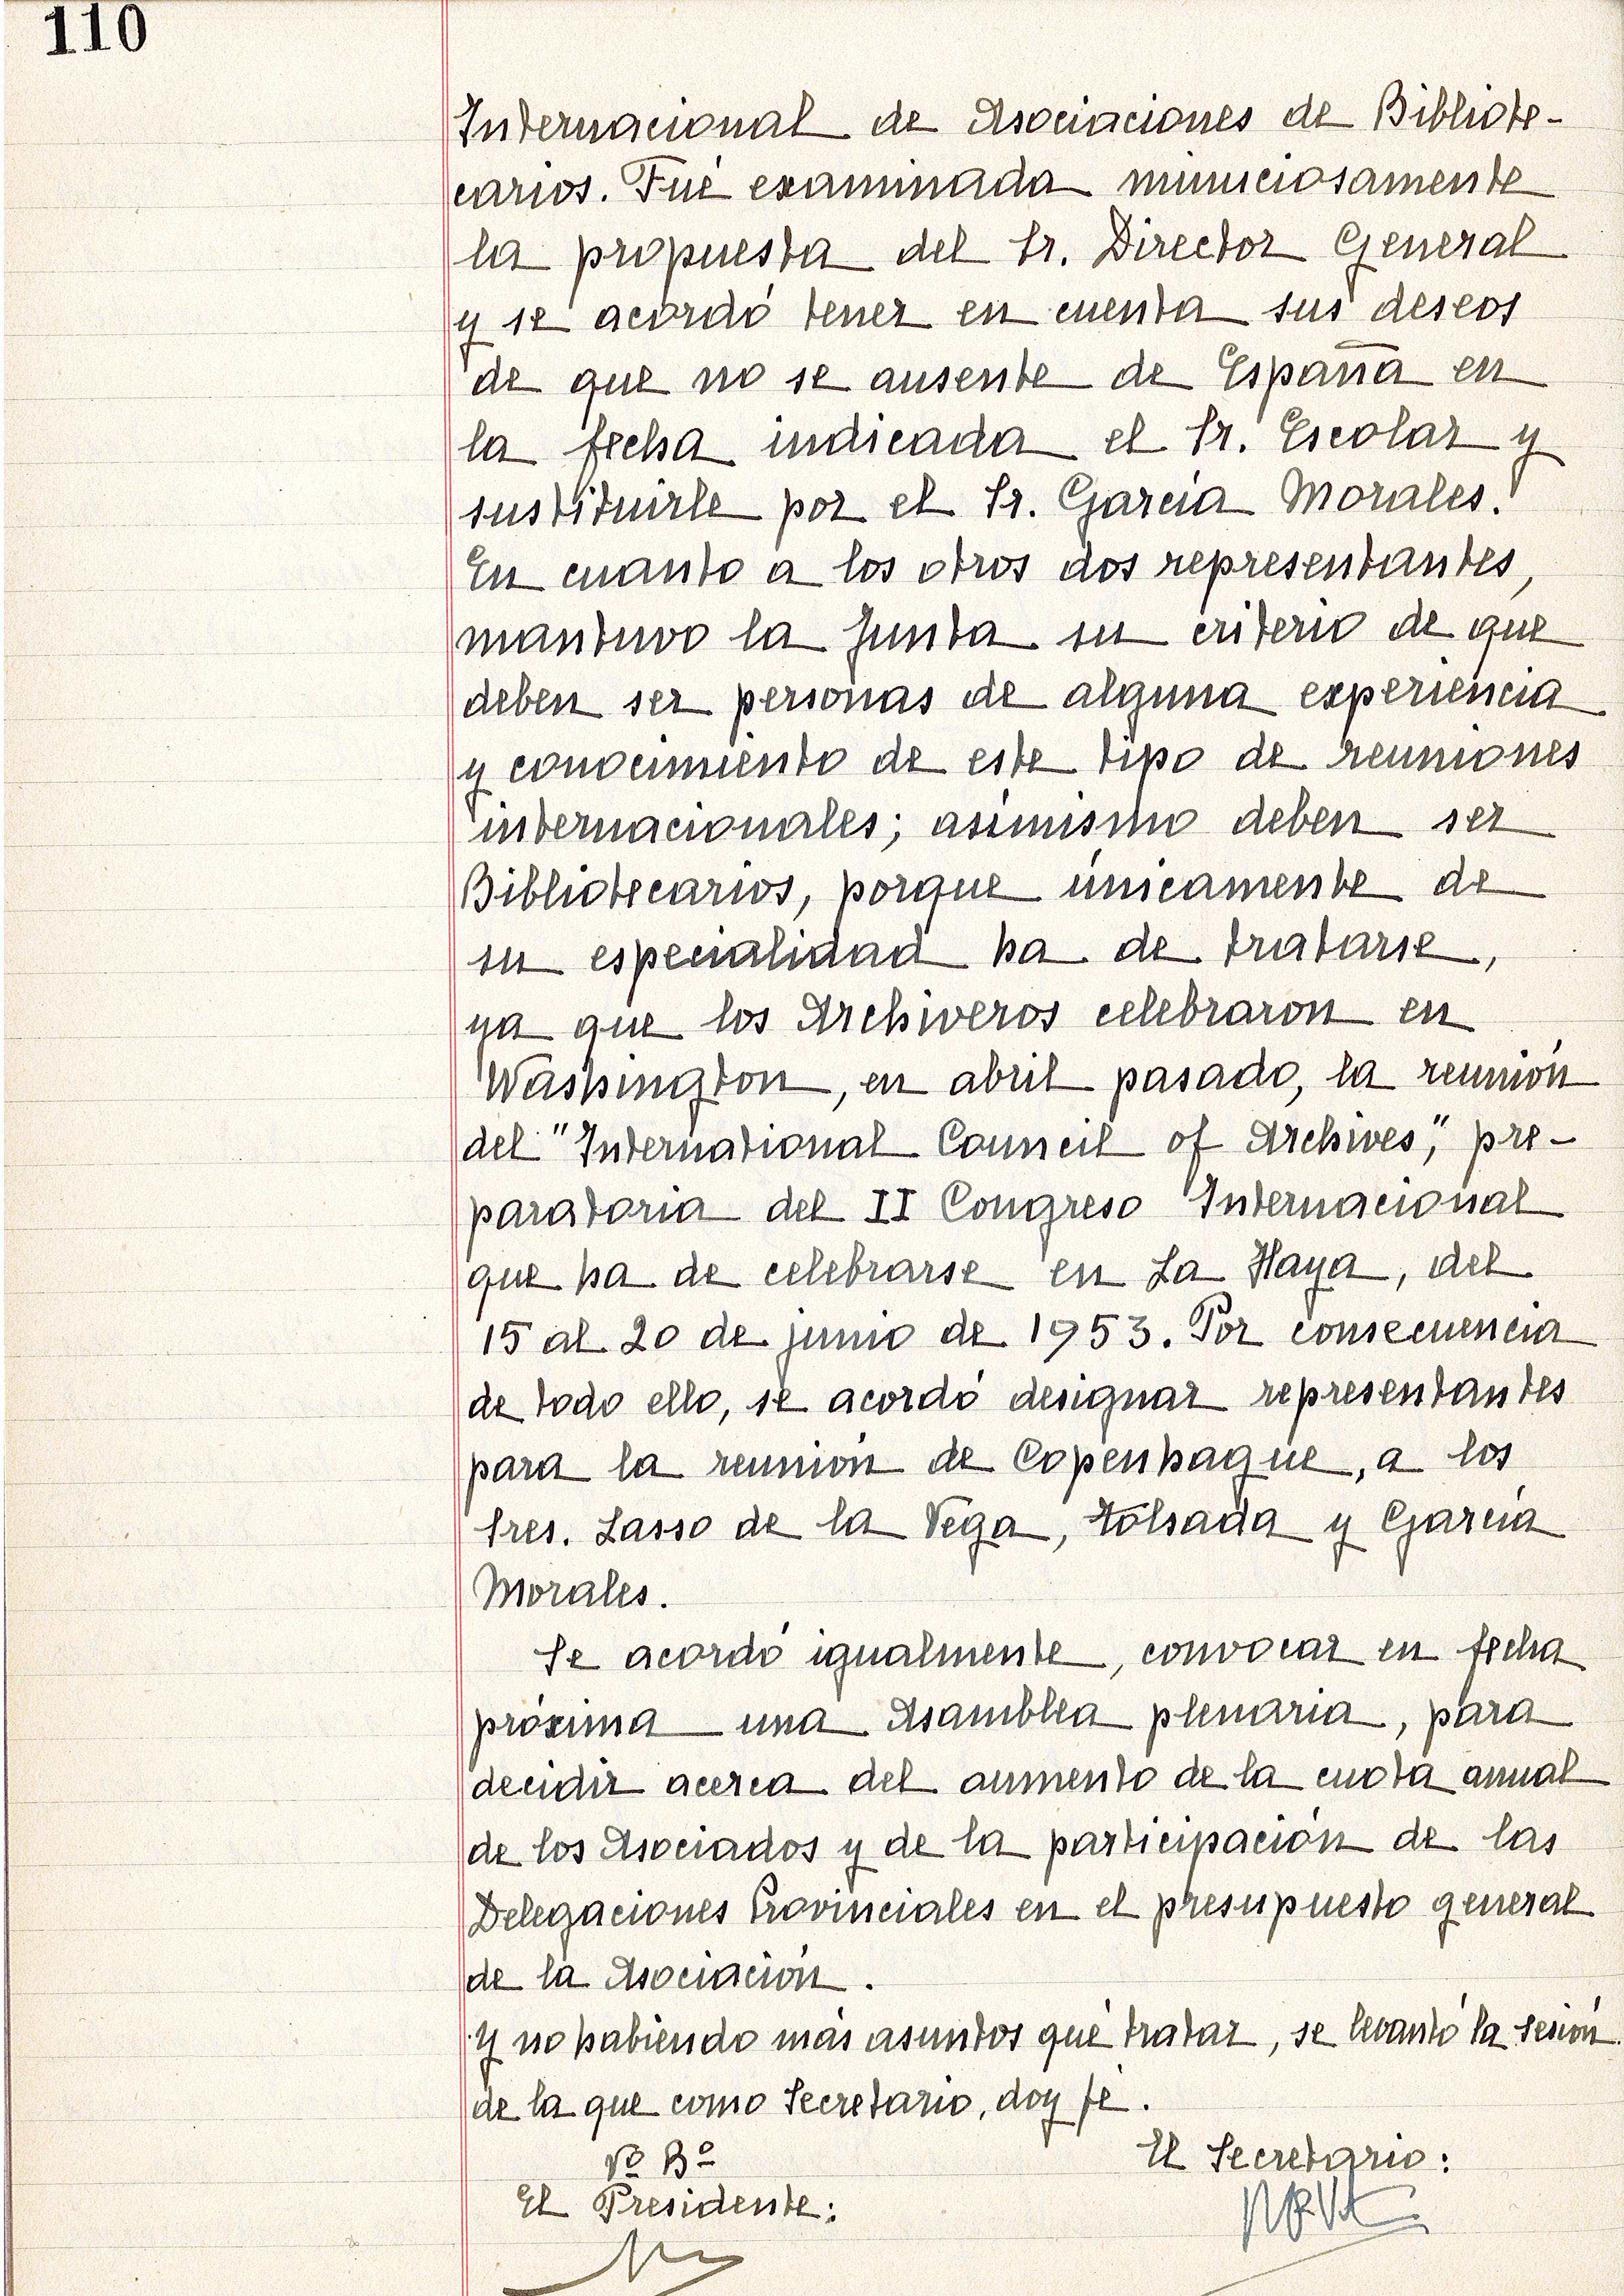 110
Internacional de Asociaciones de Bibliote-
carios. Fué examinada minuciosamente
la propuesta del Sr. Director General
y se acordó tener en cuenta sus deseos
de que no se ausente de España en
la fecha indicada el Sr. Escolar y
sustituirle por el Sr. García Morales.
En cuanto a los otros dos representantes,
mantuvo la Junta su criterio de que
deben ser personas de alguna experiencia
y conocimiento de este tipo de reuniones
internacionales; asimismo deben ser
Bibliotecarios, porque únicamente de
su especialidad ha de tratarse,
ya que los Archiveros celebraron en
Washington, en abril pasado, la reunión
del "International Council of Archives", pre-
paratoria del II Congreso Internacional
que ha de celebrarse en La Haya, del
15 al 20 de junio de 1953. Por consecuencia
de todo ello, se acordó designar representantes
para la reunión de Copenhague, a los
Sres. Lasso de la Vega, Tolsada y García
Morales.
Se acordó igualmente, convocar en fecha
próxima una Asamblea plenaria, para
decidir acerca del aumento de la cuota anual
de los Asociados y de la participación de las
Delegaciones Provinciales en el presupuesto general
de la Asociación.
Y no habiendo más asuntos qué tratar, se levantó la sesión
de la que como Secretario, doy fé.
Vº Bº
El Secretario:
El Presidente: